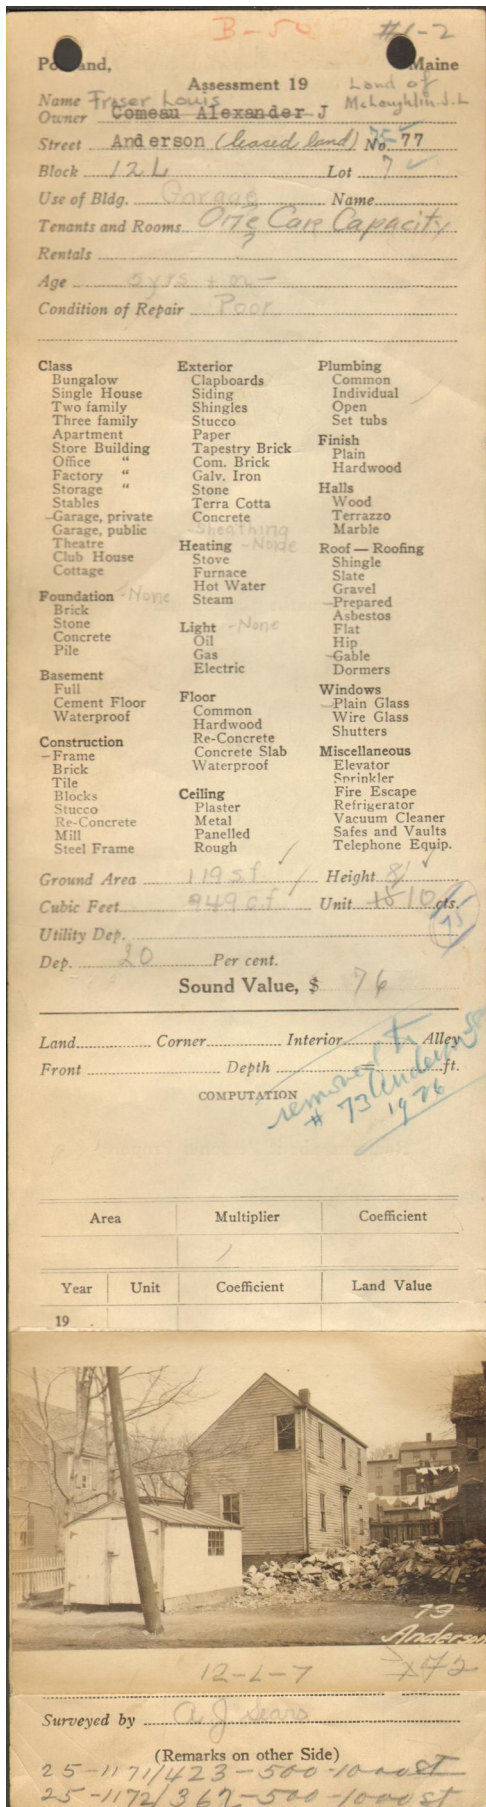 B-50 #1-2
Portland, Maine
Assessment 19 Land of
Name Fraser Louis McLoughlin J.L
Owner Comeau Alexander J
Street Anderson (leased land) No 75 77
Block 12 L Lot 7
Use of Bldg. Garage Name
Tenants and Rooms One Car Capacity
Rentals ?
Age 5 yrs + or -
Condition of Repair Poor
Class
Bungalow
Single House
Two family
Three family
Apartment
Store Building
Office "
Factory "
Storage "
Stables
Garage, private
Garage, public
Theatre
Club House
Cottage
Foundation - None
Brick
Stone
Concrete
Pile
Basement
Full
Cement Floor
Waterproof
Construction
Frame
Brick
Tile
Blocks
Stucco
Re-Concrete
Mill
Steel Frame
Exterior
Clapboards
Siding
Shingles
Stucco
Paper
Tapestry Brick
Com. Brick
Galv. Iron
Stone
Terra Cotta
Concrete
- Sheathing
Heating - None
Stove
Furnace
Hot Water
Steam
Light - None
Oil
Gas
Electric
Floor
Common
Hardwood
Re-Concrete
Concrete Slab
Waterproof
Ceiling
Plaster
Metal
Panelled
Rough
Plumbing
Common
Individual
Open
Set tubs
Finish
Plain
Hardwood
Halls
Wood
Terrazzo
Marble
Roof — Roofing
Shingle
Slate
Gravel
Prepared
Asbestos
Flat
Hip
Gable
Dormers
Windows
Plain Glass
Wire Glass
Shutters
Miscellaneous
Elevator
Sprinkler
Fire Escape
Refrigerator
Vacuum Cleaner
Safes and Vaults
Telephone Equip.
Ground Area 119 sf Height 8'
Cubic Feet 949 cf Unit 15 10 cts.
75
Utility Dep.
Dep. 20 Per cent.
Sound Value, $ 76
Land Corner Interior Alley
Front Depth = ft.
removed to
# 73 Anderson St
1926
COMPUTATION
Area Multiplier Coefficient
Year Unit Coefficient Land Value
19
73
Anderson
12-L-7 X72
Surveyed by A J Sears
(Remarks on other Side)
25-1171/423-500-1000 St
25-1172/367-500-1000 St